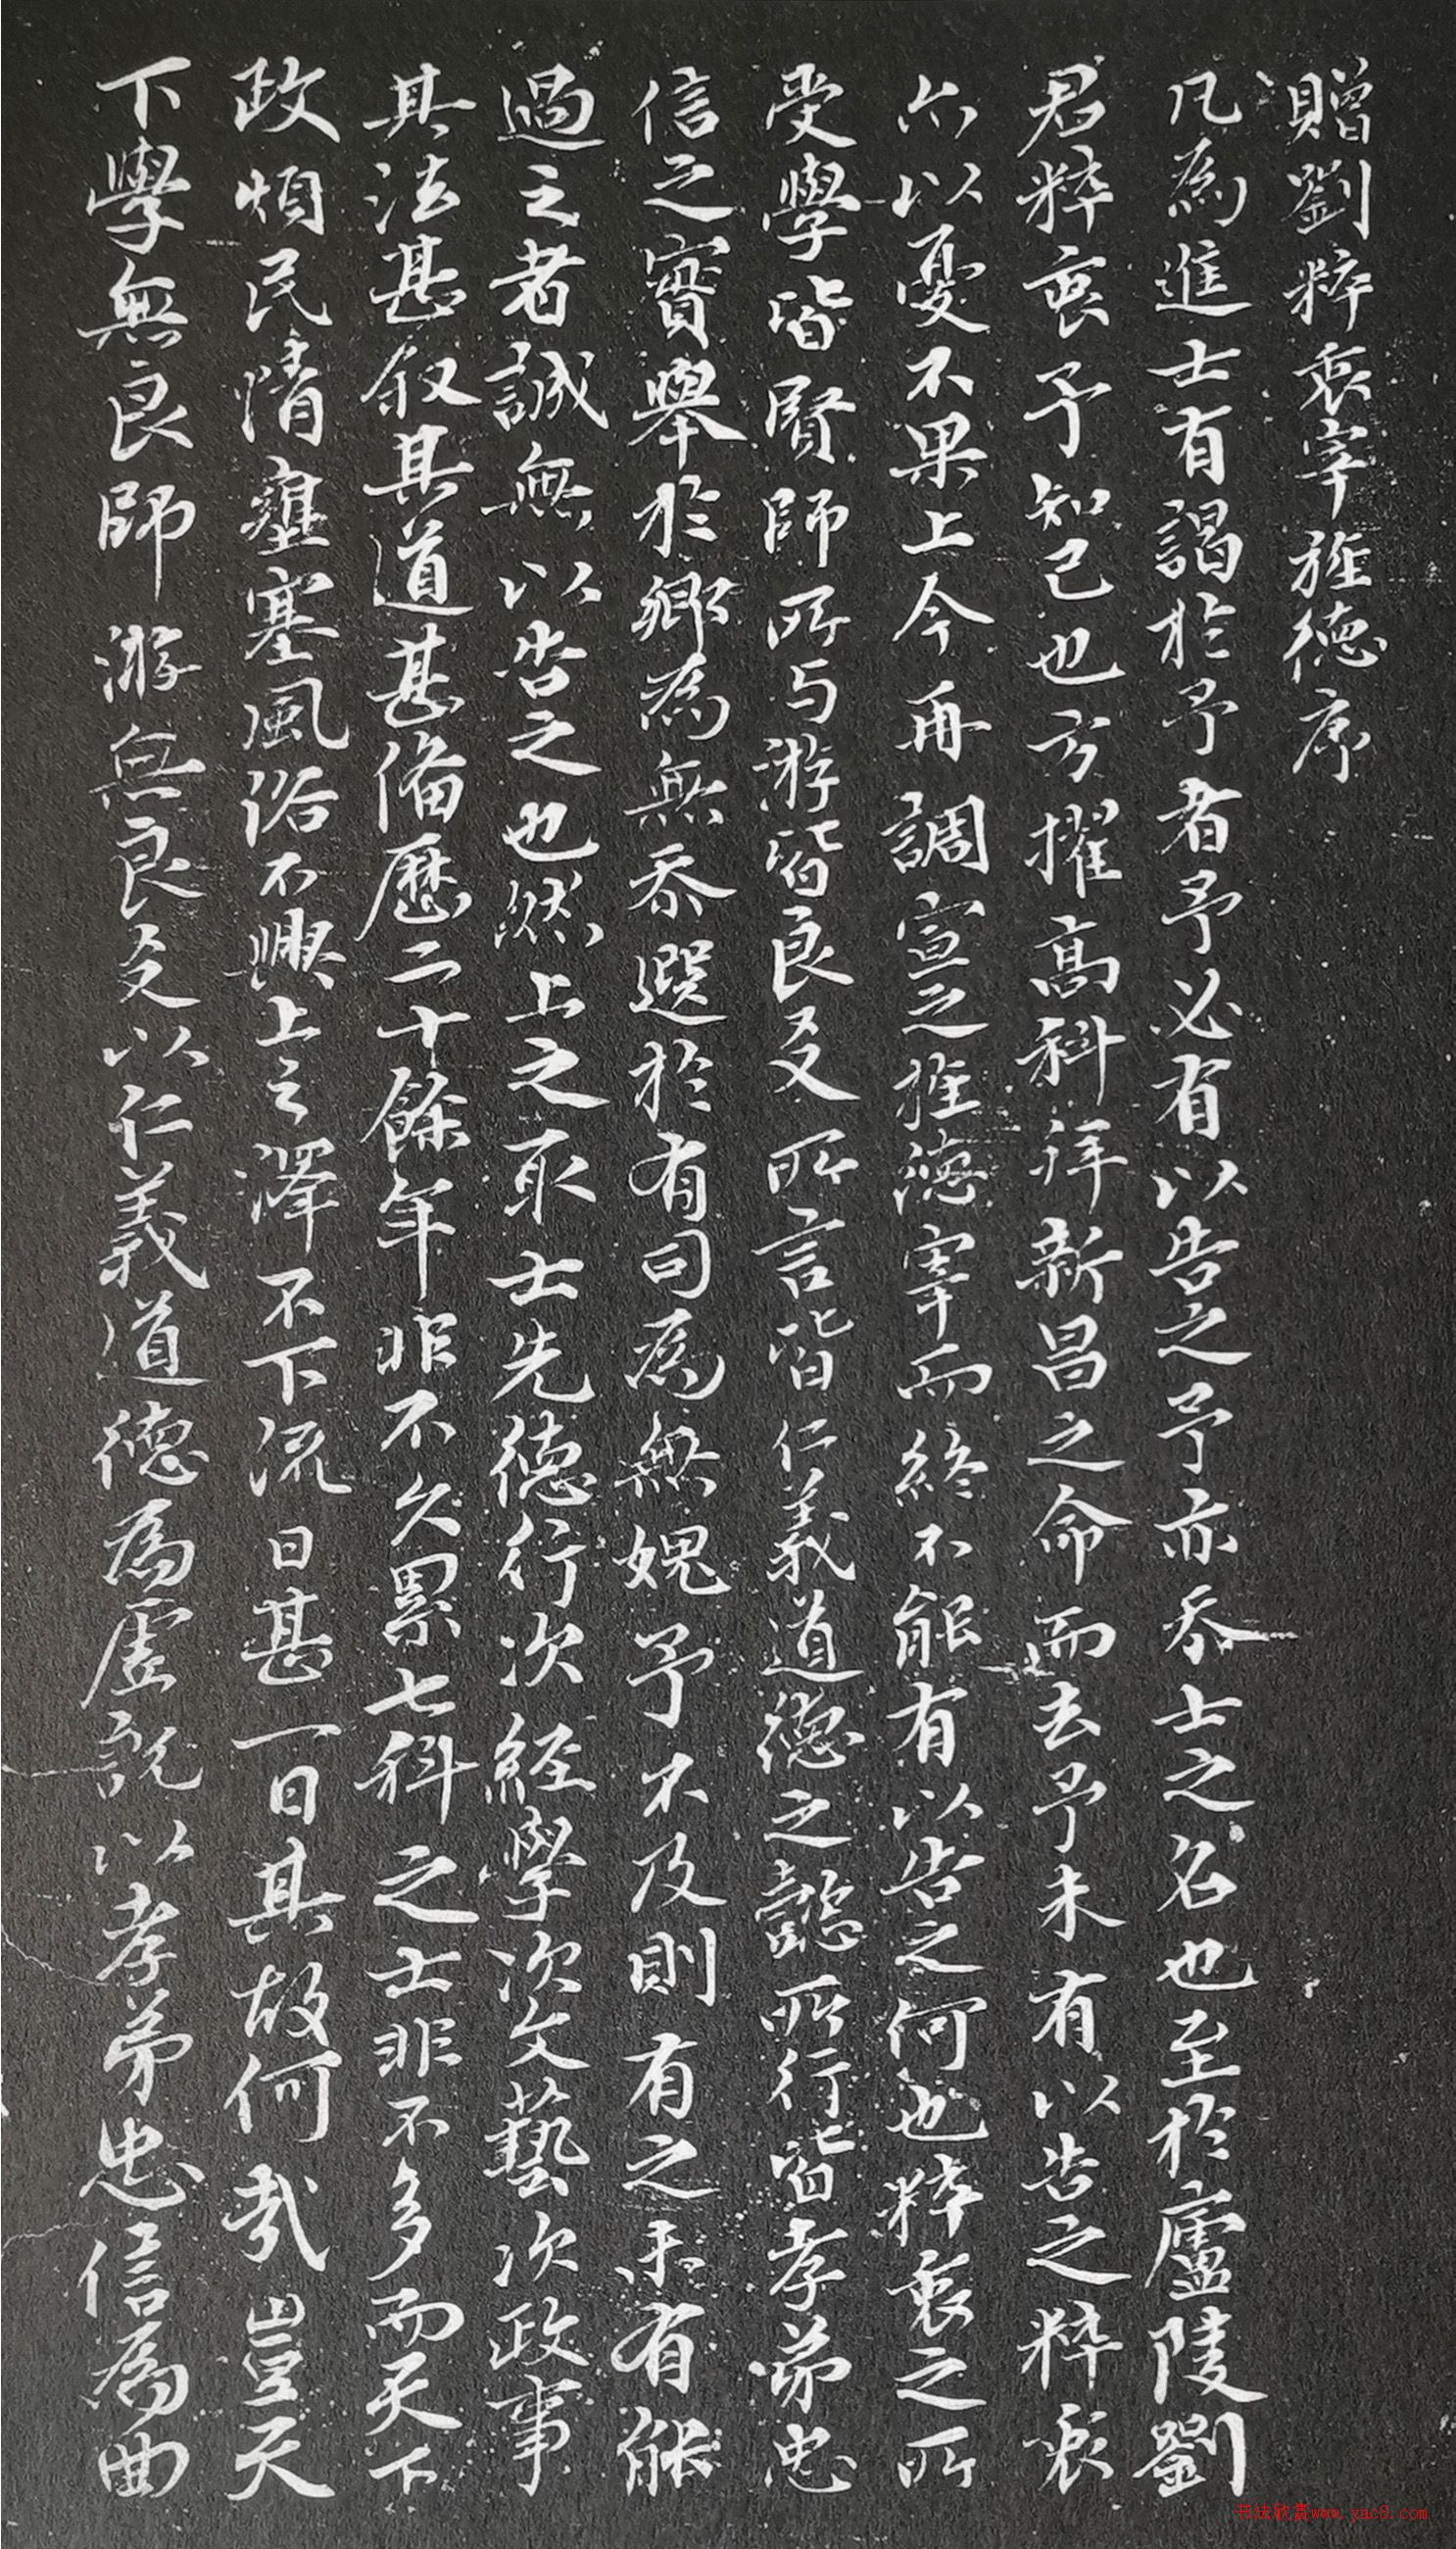 贈劉粹衷宰旌德序
凡為進士有謁於予者予必有以告之予亦忝士之名也至於廬陵劉
君粹衷予知己也方擢高科拜新昌之命而去予未有以告之粹衷
亦以憂不果上今再調宣之旌德宰而終不能有以告之何也粹衷之所
受學皆賢師所与游皆良友所言皆仁義道德之懿所行皆孝弟忠
信之實舉於鄉為無忝選於有司為無媿予不及則有之未有能
過之者誠無以告之也然上之取士先德行次經學次文藝次政事
其法甚叙其道甚備歷二十餘年非不久累七科之士非不多而天下
政煩民情壅塞風俗不興上之澤不下流日甚一日其故何哉豈天
下學無良師游無良友以仁義道德為虛說以孝弟忠信為曲
书法欣赏www.yac8.com